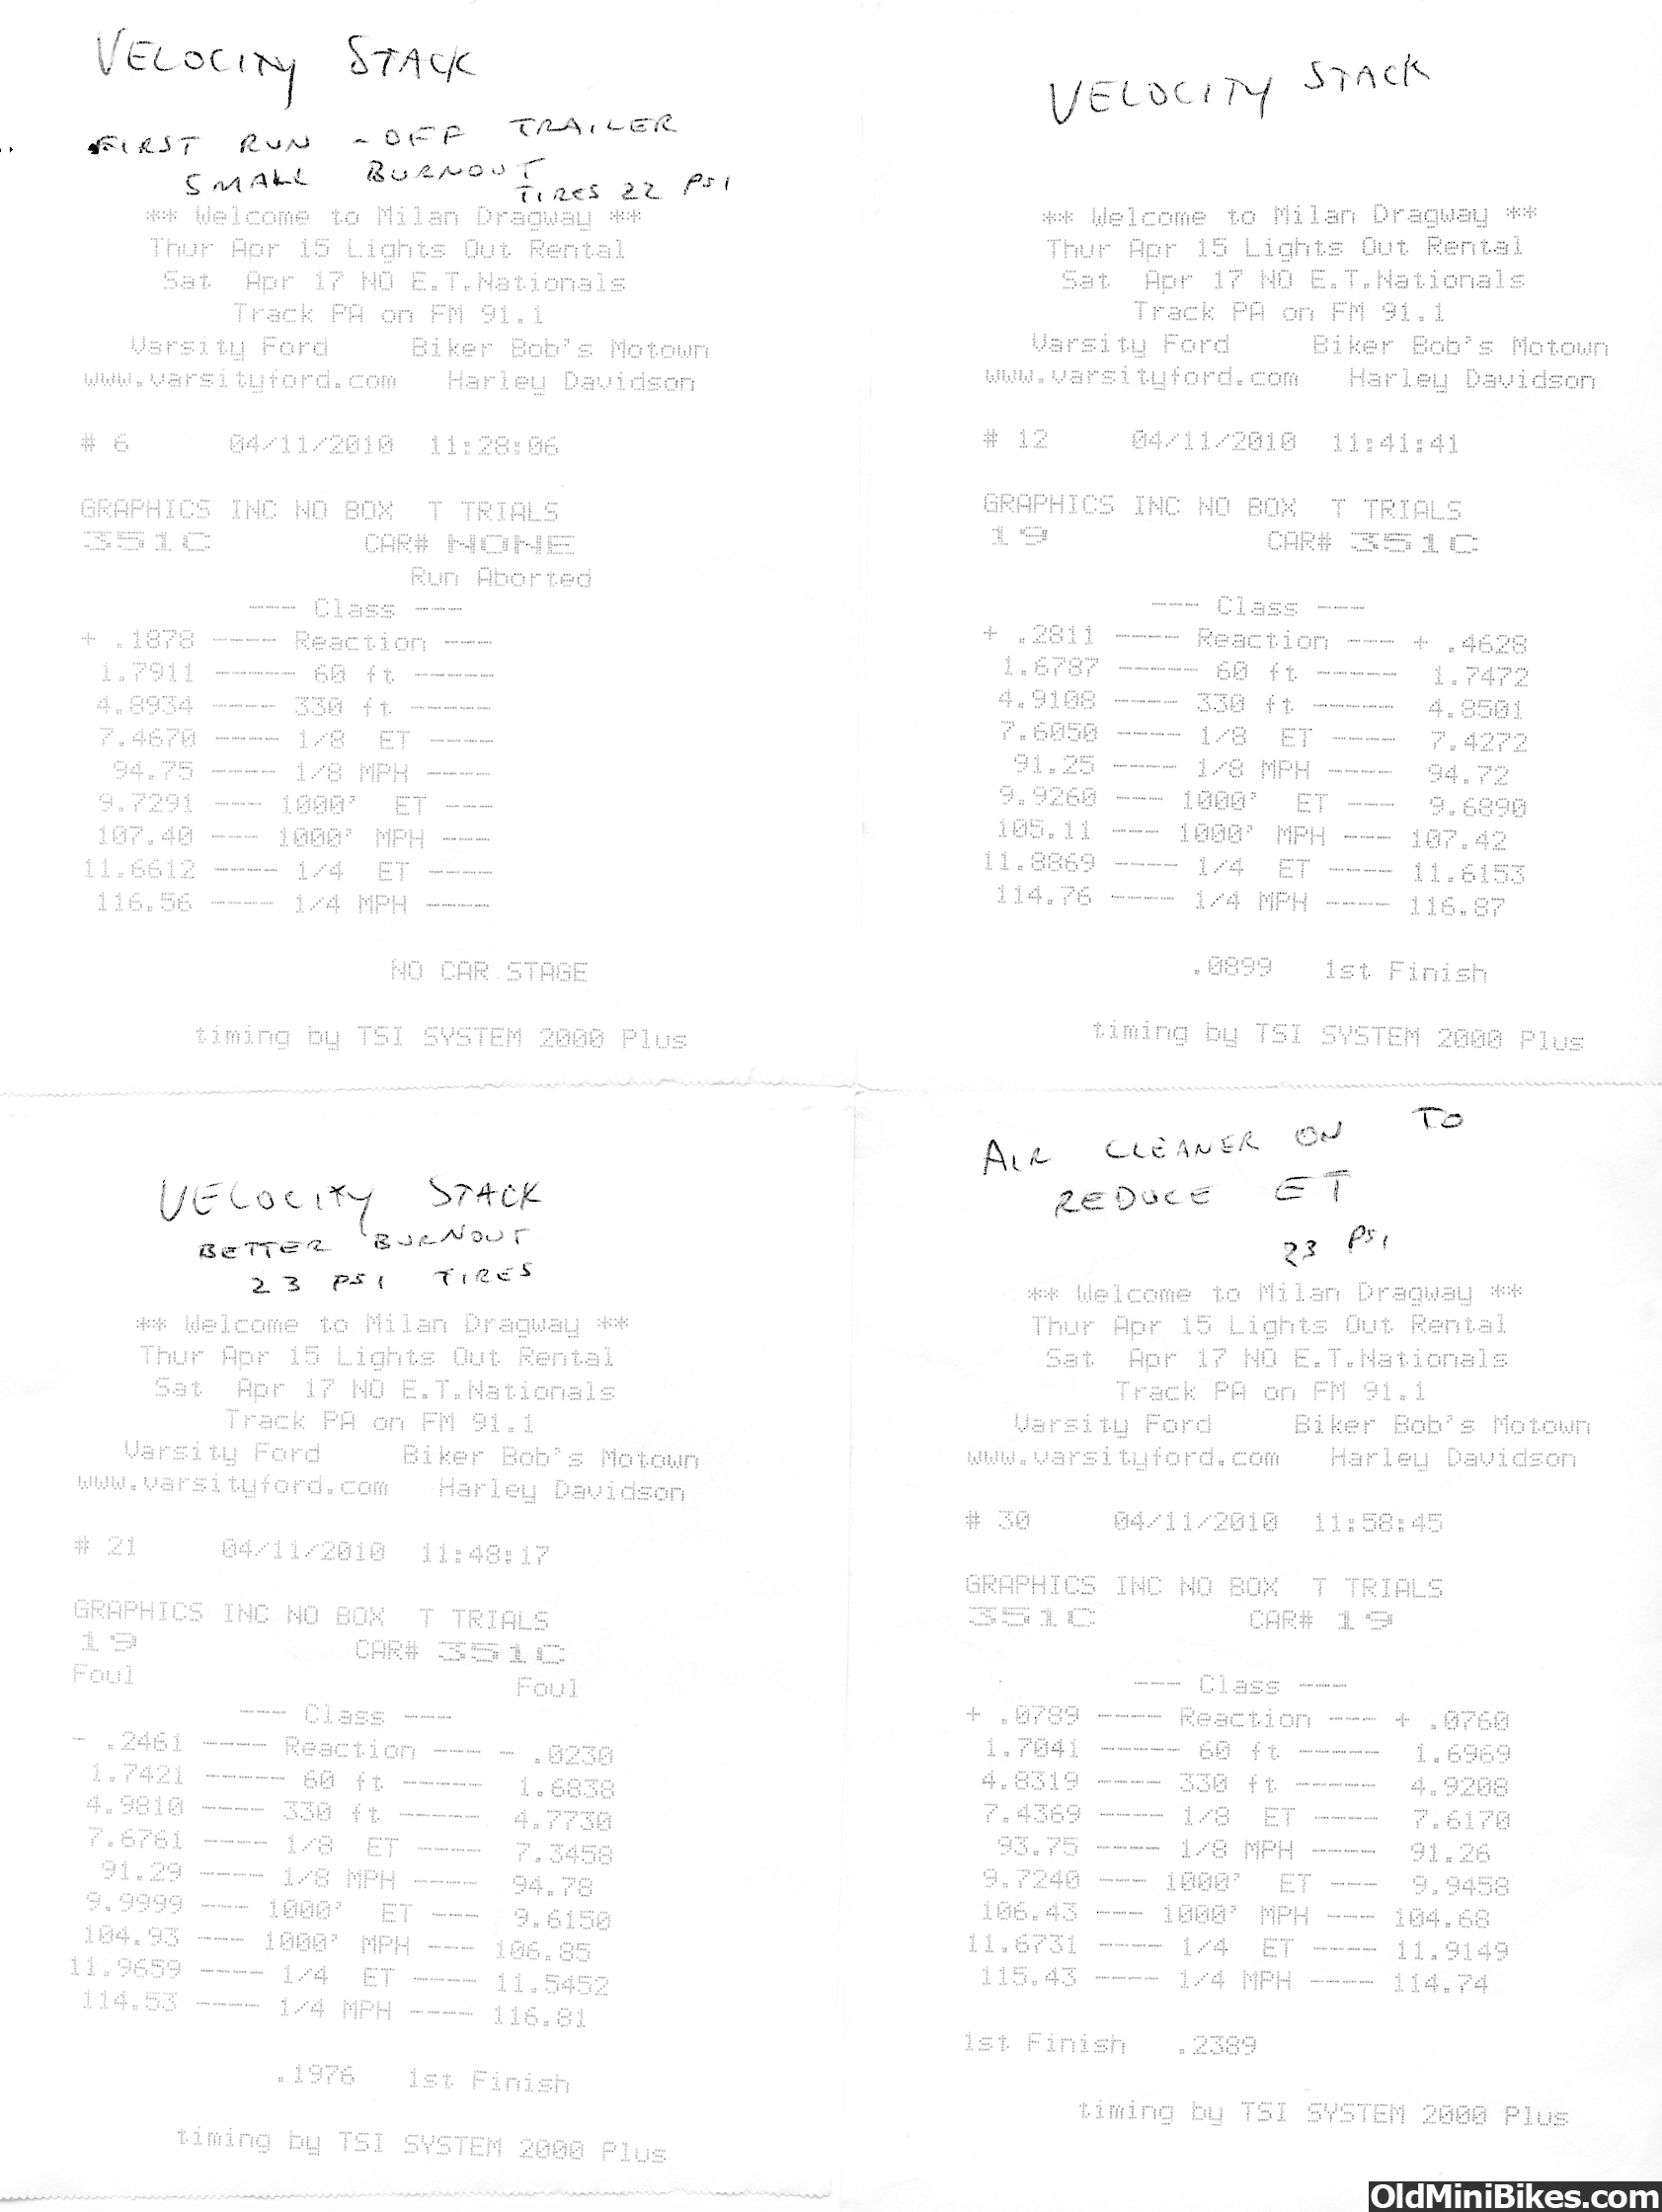 VELOCITY STACK
FIRST RUN - OFF TRAILER
SMALL BURNOUT
TIRES 22 PSI
** Welcome to Milan Dragway **
Thur Apr 15 Lights Out Rental
Sat Apr 17 NO E.T.Nationals
Track PA on FM 91.1
Varsity Ford Biker Bob's Motown
www.varsityford.com Harley Davidson
# 6 04/11/2010 11:28:06
GRAPHICS INC NO BOX T TRIALS
351C CAR# NONE
Run Aborted
---- Class ----
+ .1878 ---- Reaction ----
1.7911 ---- 60 ft ----
4.8934 ---- 330 ft ----
7.4670 ---- 1/8 ET ----
94.75 ---- 1/8 MPH ----
9.7291 ---- 1000' ET ----
107.40 ---- 1000' MPH ----
11.6612 ---- 1/4 ET ----
116.56 ---- 1/4 MPH ----
NO CAR STAGE
timing by TSI SYSTEM 2000 Plus
VELOCITY STACK
** Welcome to Milan Dragway **
Thur Apr 15 Lights Out Rental
Sat Apr 17 NO E.T.Nationals
Track PA on FM 91.1
Varsity Ford Biker Bob's Motown
www.varsityford.com Harley Davidson
# 12 04/11/2010 11:41:41
GRAPHICS INC NO BOX T TRIALS
19 CAR# 351C
---- Class ----
+ .2811 ---- Reaction ---- + .4628
1.6787 ---- 60 ft ---- 1.7472
4.9108 ---- 330 ft ---- 4.8501
7.6050 ---- 1/8 ET ---- 7.4272
91.25 ---- 1/8 MPH ---- 94.72
9.9260 ---- 1000' ET ---- 9.6890
105.11 ---- 1000' MPH ---- 107.42
11.8869 ---- 1/4 ET ---- 11.6153
114.76 ---- 1/4 MPH ---- 116.87
.0899 1st Finish
timing by TSI SYSTEM 2000 Plus
VELOCITY STACK
BETTER BURNOUT
23 PSI TIRES
** Welcome to Milan Dragway **
Thur Apr 15 Lights Out Rental
Sat Apr 17 NO E.T.Nationals
Track PA on FM 91.1
Varsity Ford Biker Bob's Motown
www.varsityford.com Harley Davidson
# 21 04/11/2010 11:48:17
GRAPHICS INC NO BOX T TRIALS
19 CAR# 351C
Foul Foul
---- Class ----
- .2461 ---- Reaction ---- - .0230
1.7421 ---- 60 ft ---- 1.6838
4.9810 ---- 330 ft ---- 4.7730
7.6761 ---- 1/8 ET ---- 7.3458
91.29 ---- 1/8 MPH ---- 94.78
9.9999 ---- 1000' ET ---- 9.6150
104.93 ---- 1000' MPH ---- 106.85
11.9659 ---- 1/4 ET ---- 11.5452
114.53 ---- 1/4 MPH ---- 116.81
.1976 1st Finish
timing by TSI SYSTEM 2000 Plus
AIR CLEANER ON TO
REDUCE ET
23 PSI
** Welcome to Milan Dragway **
Thur Apr 15 Lights Out Rental
Sat Apr 17 NO E.T.Nationals
Track PA on FM 91.1
Varsity Ford Biker Bob's Motown
www.varsityford.com Harley Davidson
# 30 04/11/2010 11:58:45
GRAPHICS INC NO BOX T TRIALS
351C CAR# 19
---- Class ----
+ .0789 ---- Reaction ---- + .0760
1.7041 ---- 60 ft ---- 1.6969
4.8319 ---- 330 ft ---- 4.9208
7.4369 ---- 1/8 ET ---- 7.6170
93.75 ---- 1/8 MPH ---- 91.26
9.7240 ---- 1000' ET ---- 9.9458
106.43 ---- 1000' MPH ---- 104.68
11.6731 ---- 1/4 ET ---- 11.9149
115.43 ---- 1/4 MPH ---- 114.74
1st Finish .2389
timing by TSI SYSTEM 2000 Plus
OldMiniBikes.com